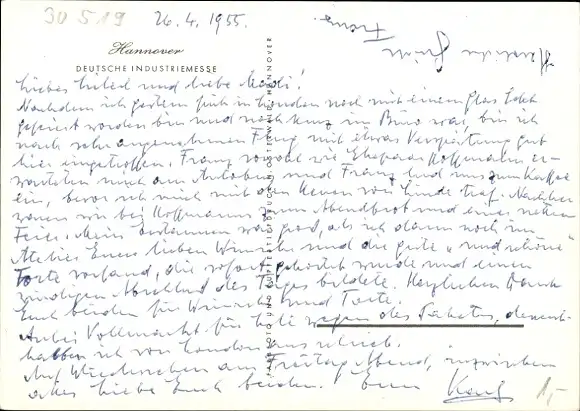 30519 26.4.1955.
Hannover
DEUTSCHE INDUSTRIEMESSE
Herzliche Grüße
Franz.
Liebes und liebe
Nachdem ich gestern früh in London noch mit einem Glas Sekt
gefeiert worden bin und noch kurz im Büro war, bin ich
nach sehr angenehmem Flug mit etwas Verspätung gut
hier eingetroffen. Franz sowohl wie Ehepaar Hoffmann er-
warteten mich am Autobus und Franz lud uns zum Kaffee
ein, bevor ich mich mit den Herren von Linde traf. Nachher
waren wir bei Hoffmanns zum Abendbrot und einer
Feier. Mein Erstaunen war groß, als ich dann noch im
Atelier Eure lieben Wünsche und die gute "und schöne"
Torte vorfand, die sofort gekostet wurde und einen
würdigen Abschluß des Tages bildete. Herzlichen Dank
Euch beiden für Wünsche und Torte.
Vollmacht für wegen des Paketes,
ich von London aus schrieb.
Auf Wiedersehen am Freitag Abend, inzwischen
alles Liebe Euch beiden. Euer
FARBFOTO UND HANNOVER
1,-